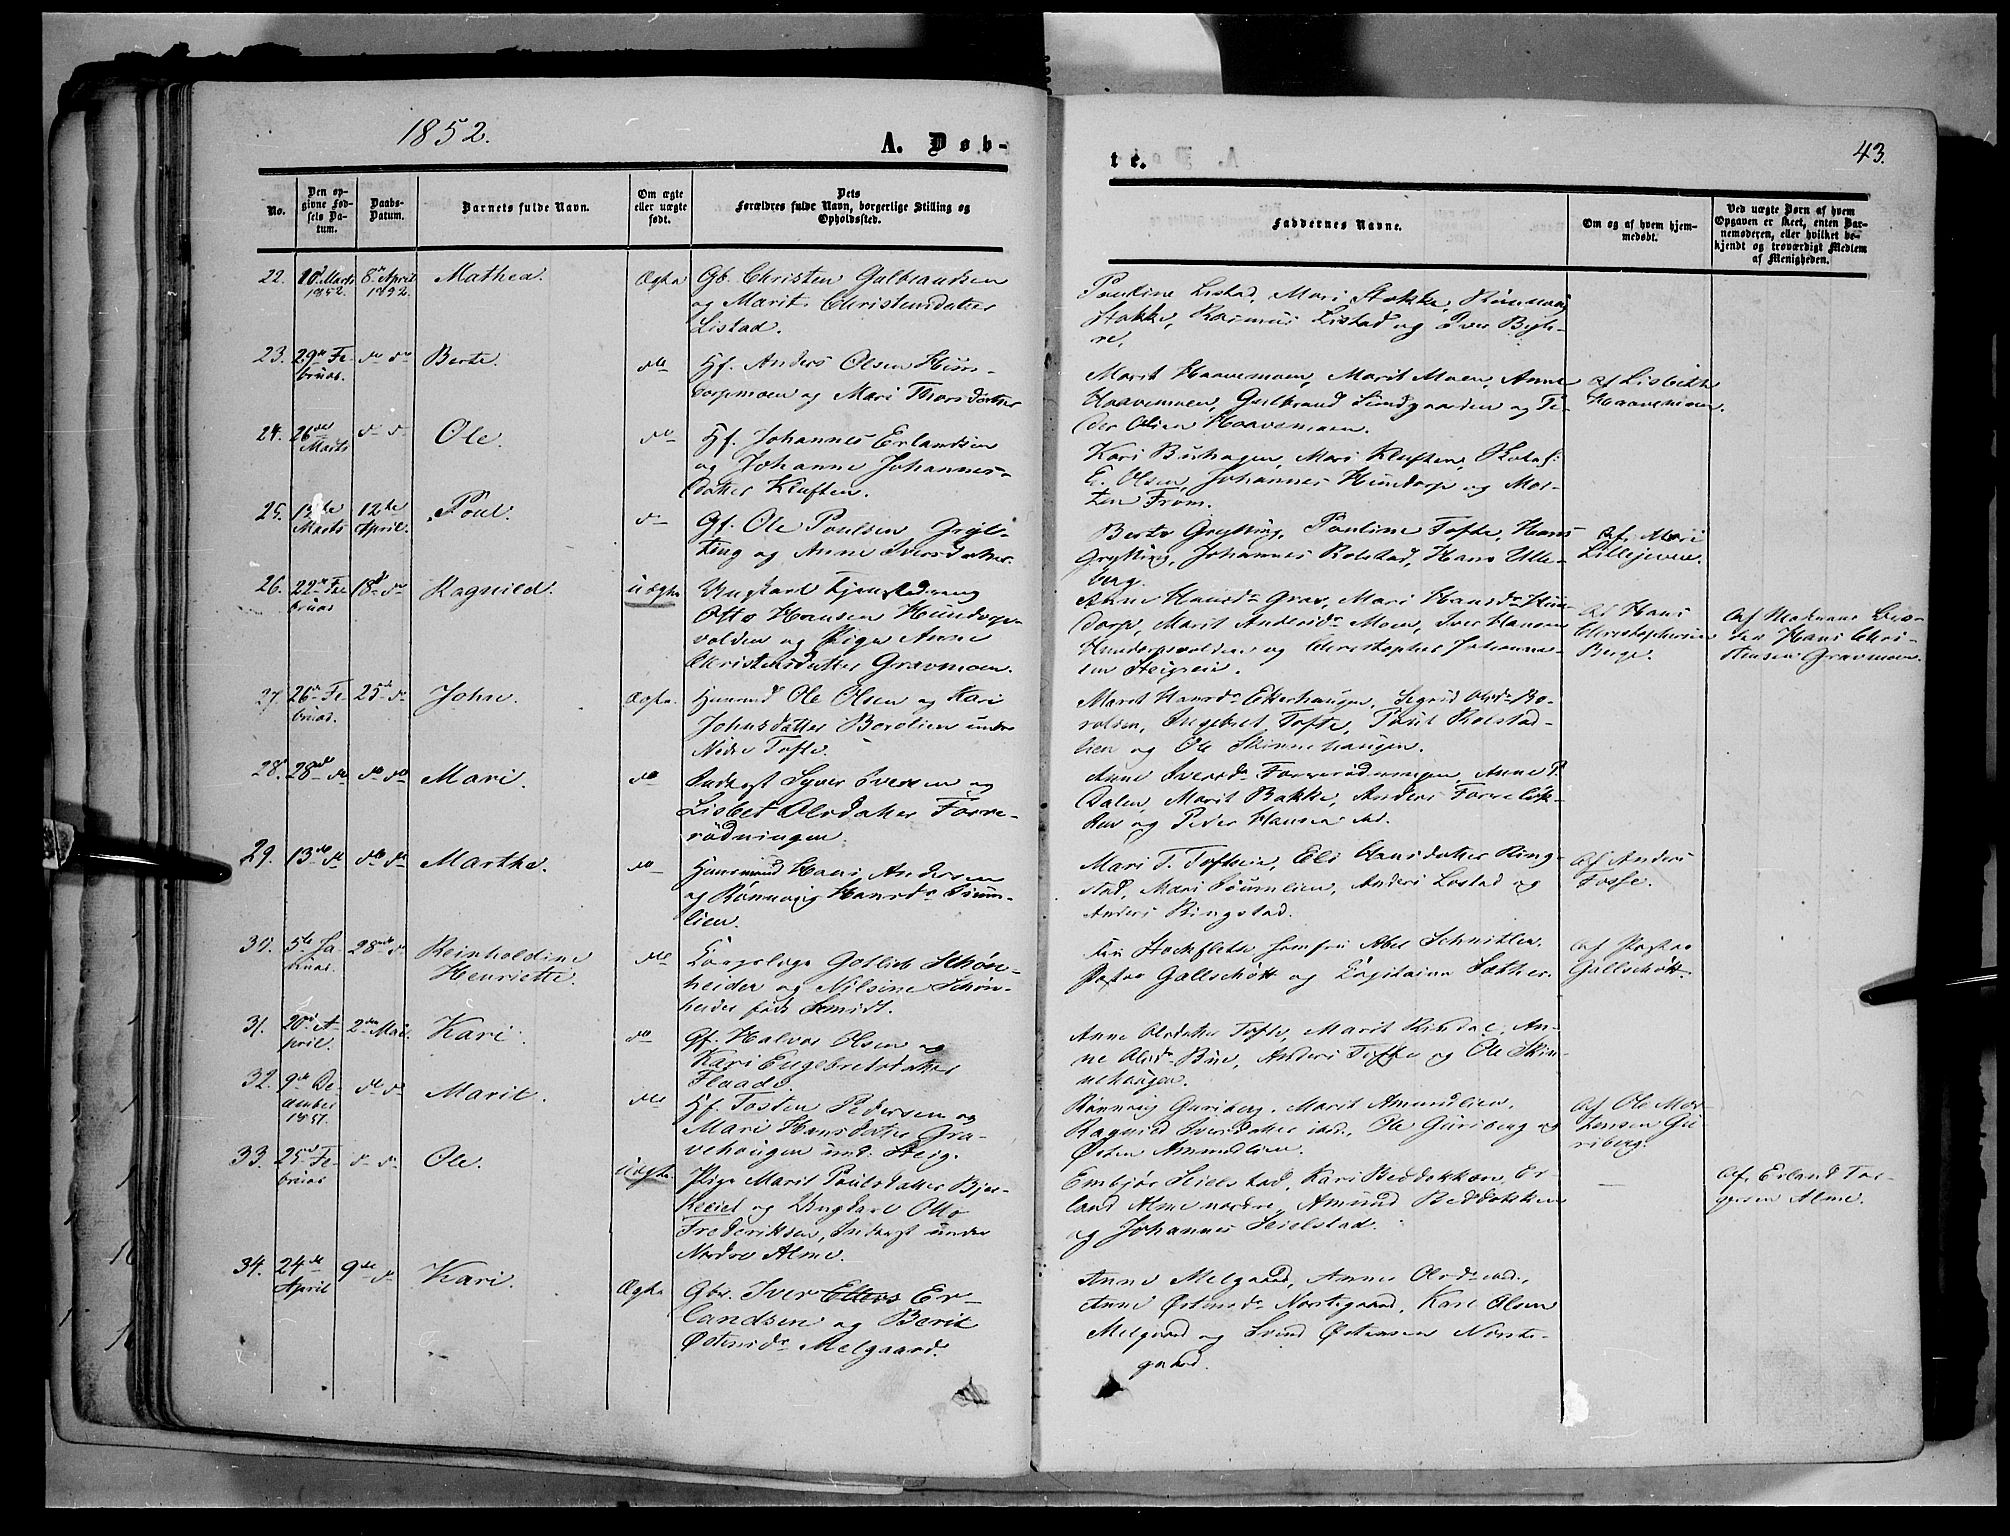 1852.
A. Døb-
te.
43.
No.
Den op-
givne Fød-
sels Da-
tum.
Daabs-
Datum.
Barnets fulde Navn.
Om ægte
eller uægte
født.
Dets
Forældres fulde Navn, borgerlige Stilling og
Opholdssted.
Faddernes Navne.
Om og af hvem hjem-
medøbt.
Ved uægte Børn af hvem
Opgaven er skeet, enten Bar-
nemoderen, eller hvilket be-
kjendt og troværdigt Medlem
af Menigheden.
22.
10d Marts
1852.
8de April
1852.
Mathea.
Ægte
Gb. Christen Gulbrandsen
og Marit Christensdatter
Listad.
Pauline Listad, Mari Stokke, Rønnoug
Stokke, Rasmus Listad og Iver Byh-
re.
23.
29de Fe-
bruar.
do do
Berte.
do
Hf. Anders Olsen Hun-
dorpmoen og Mari Thorsdatter
Marit Haavemoen, Marit Moen, Anne
Haavemoen, Gulbrand Lundgaarden og Pe-
der Olsen Haavemoen.
af Lisbeth
Haavemoen.
24.
26de
Marts
do do
Ole.
do
Hf. Johannes Erlandsen
og Johanne Johannes-
datter Kluften.
Kari Buhagen, Mari Kluften,
E. Olsen, Johannes Hundorp og Mor-
ten From.
25.
Marts
12te
April.
Poul.
do
Gf. Ole Poulsen Gryt-
ting og Anne Iversdatter.
Berte Grytting, Pauline Tofte, Hans
Grytting, Johannes Rolstad, Hans Ulle-
berg.
af Mari
Lillejeven.
26.
22de Fe-
bruar
18de do
Ragnild.
Uægte
Ungkarl Tjenstedreng
Otto Hansen Hundorp-
volden og Pige Anne
Christensdatter Gravmoen.
Anne Hansdr Grav, Mari Hansdr Hun-
dorp, Marit Andersdr Moen, Iver Hansen
Hundorpvolden og Christopher Johanne-
sen Steigren.
af Hans
Christophersen
Berge.
af Moderens Bro-
der Hans Chri-
stensen Gravmoen.
27.
26de Fe-
bruar.
25de do
John.
Ægte.
Huusmd Ole Olsen og Kari
Johnsdatter Borolien under
Nedre Tofte.
Marit Hansdr Etterhaugen, Sigrid Olsdr Bo-
rolien, Ingebret Tofte, Poul Rolstad-
lien og Ole Skinnehaugen.
28.
28de do
do do
Mari.
do
Inderst Syver Iversen og
Lisbet Olsdatter Forre-
rødningen.
Anne Iversdr Forrerødningen, Anne P.
Dalen, Marit Bakke, Anders Forreløk-
ken og Peder Hansen ibd.
29.
13de do
do do
Marthe.
do
Huusmand Hans Andersen
og Rønnoug Hansdr
lien.
Mari T. Toftein, Eli Hansdatter Ring-
stad, Mari, Anders Lostad og
Anders Ringstad.
af Anders
Fosse.
30.
5te Ja-
nuar.
28nde do
Reinholdine
Henriette.
do
Corpslæge Gotlieb Schøn-
heider og Nilsine Schøn-
heider født Smidt.
Fru Stockfleth, Jomfru Abel Schnitler.
Pastor Gallschøtt og Capitaine Sæther.
af Pastor
Gallschøtt.
31.
20de A-
pril.
2den Mai.
Kari.
do
Gf. Halvor Olsen og
Kari Engebretsdatter
Flaade.
Anne Olsdatter Tofte, Marit Rindal, An-
ne Olsdr Bue, Anders Tofte og Ole Skin-
nehaugen.
32.
9de De-
cember
1851.
do do
Marit.
do
Hf. Tosten Pedersen og
Mari Hansdatter Gra-
vehougen und. Steig.
Rønnoug Guriberg, Marit Amundlien,
Ragnild Iversdatter ibd., Ole Guriberg og
Østen Amundlien.
af Ole Mor-
tensen Gu-
riberg.
33.
25de Fe-
bruar
do do
Ole.
Uægte
Pige Marit Poulsdatter Bjer-
keeiet og Ungkarl Otto
Frederiksen, Inderst under
Nordre Alme.
Embjør Sielstad, Kari Beddokken, Er-
land Alme nordre, Amund Beddokken
og Johannes Sielstad.
—
af Erland Tor-
gersen Alme.
34.
24de
April
9de do
Kari.
Ægte
Gbr. Iver Ellers Er-
landsen og Berit
Østensdr Melgaard.
Anne Melgaard, Anne Olsdr ibd.,
Anne Østensdr Norstegaard, Kari Olsen
Melgaard og Svend Østensen Norste-
gaard.